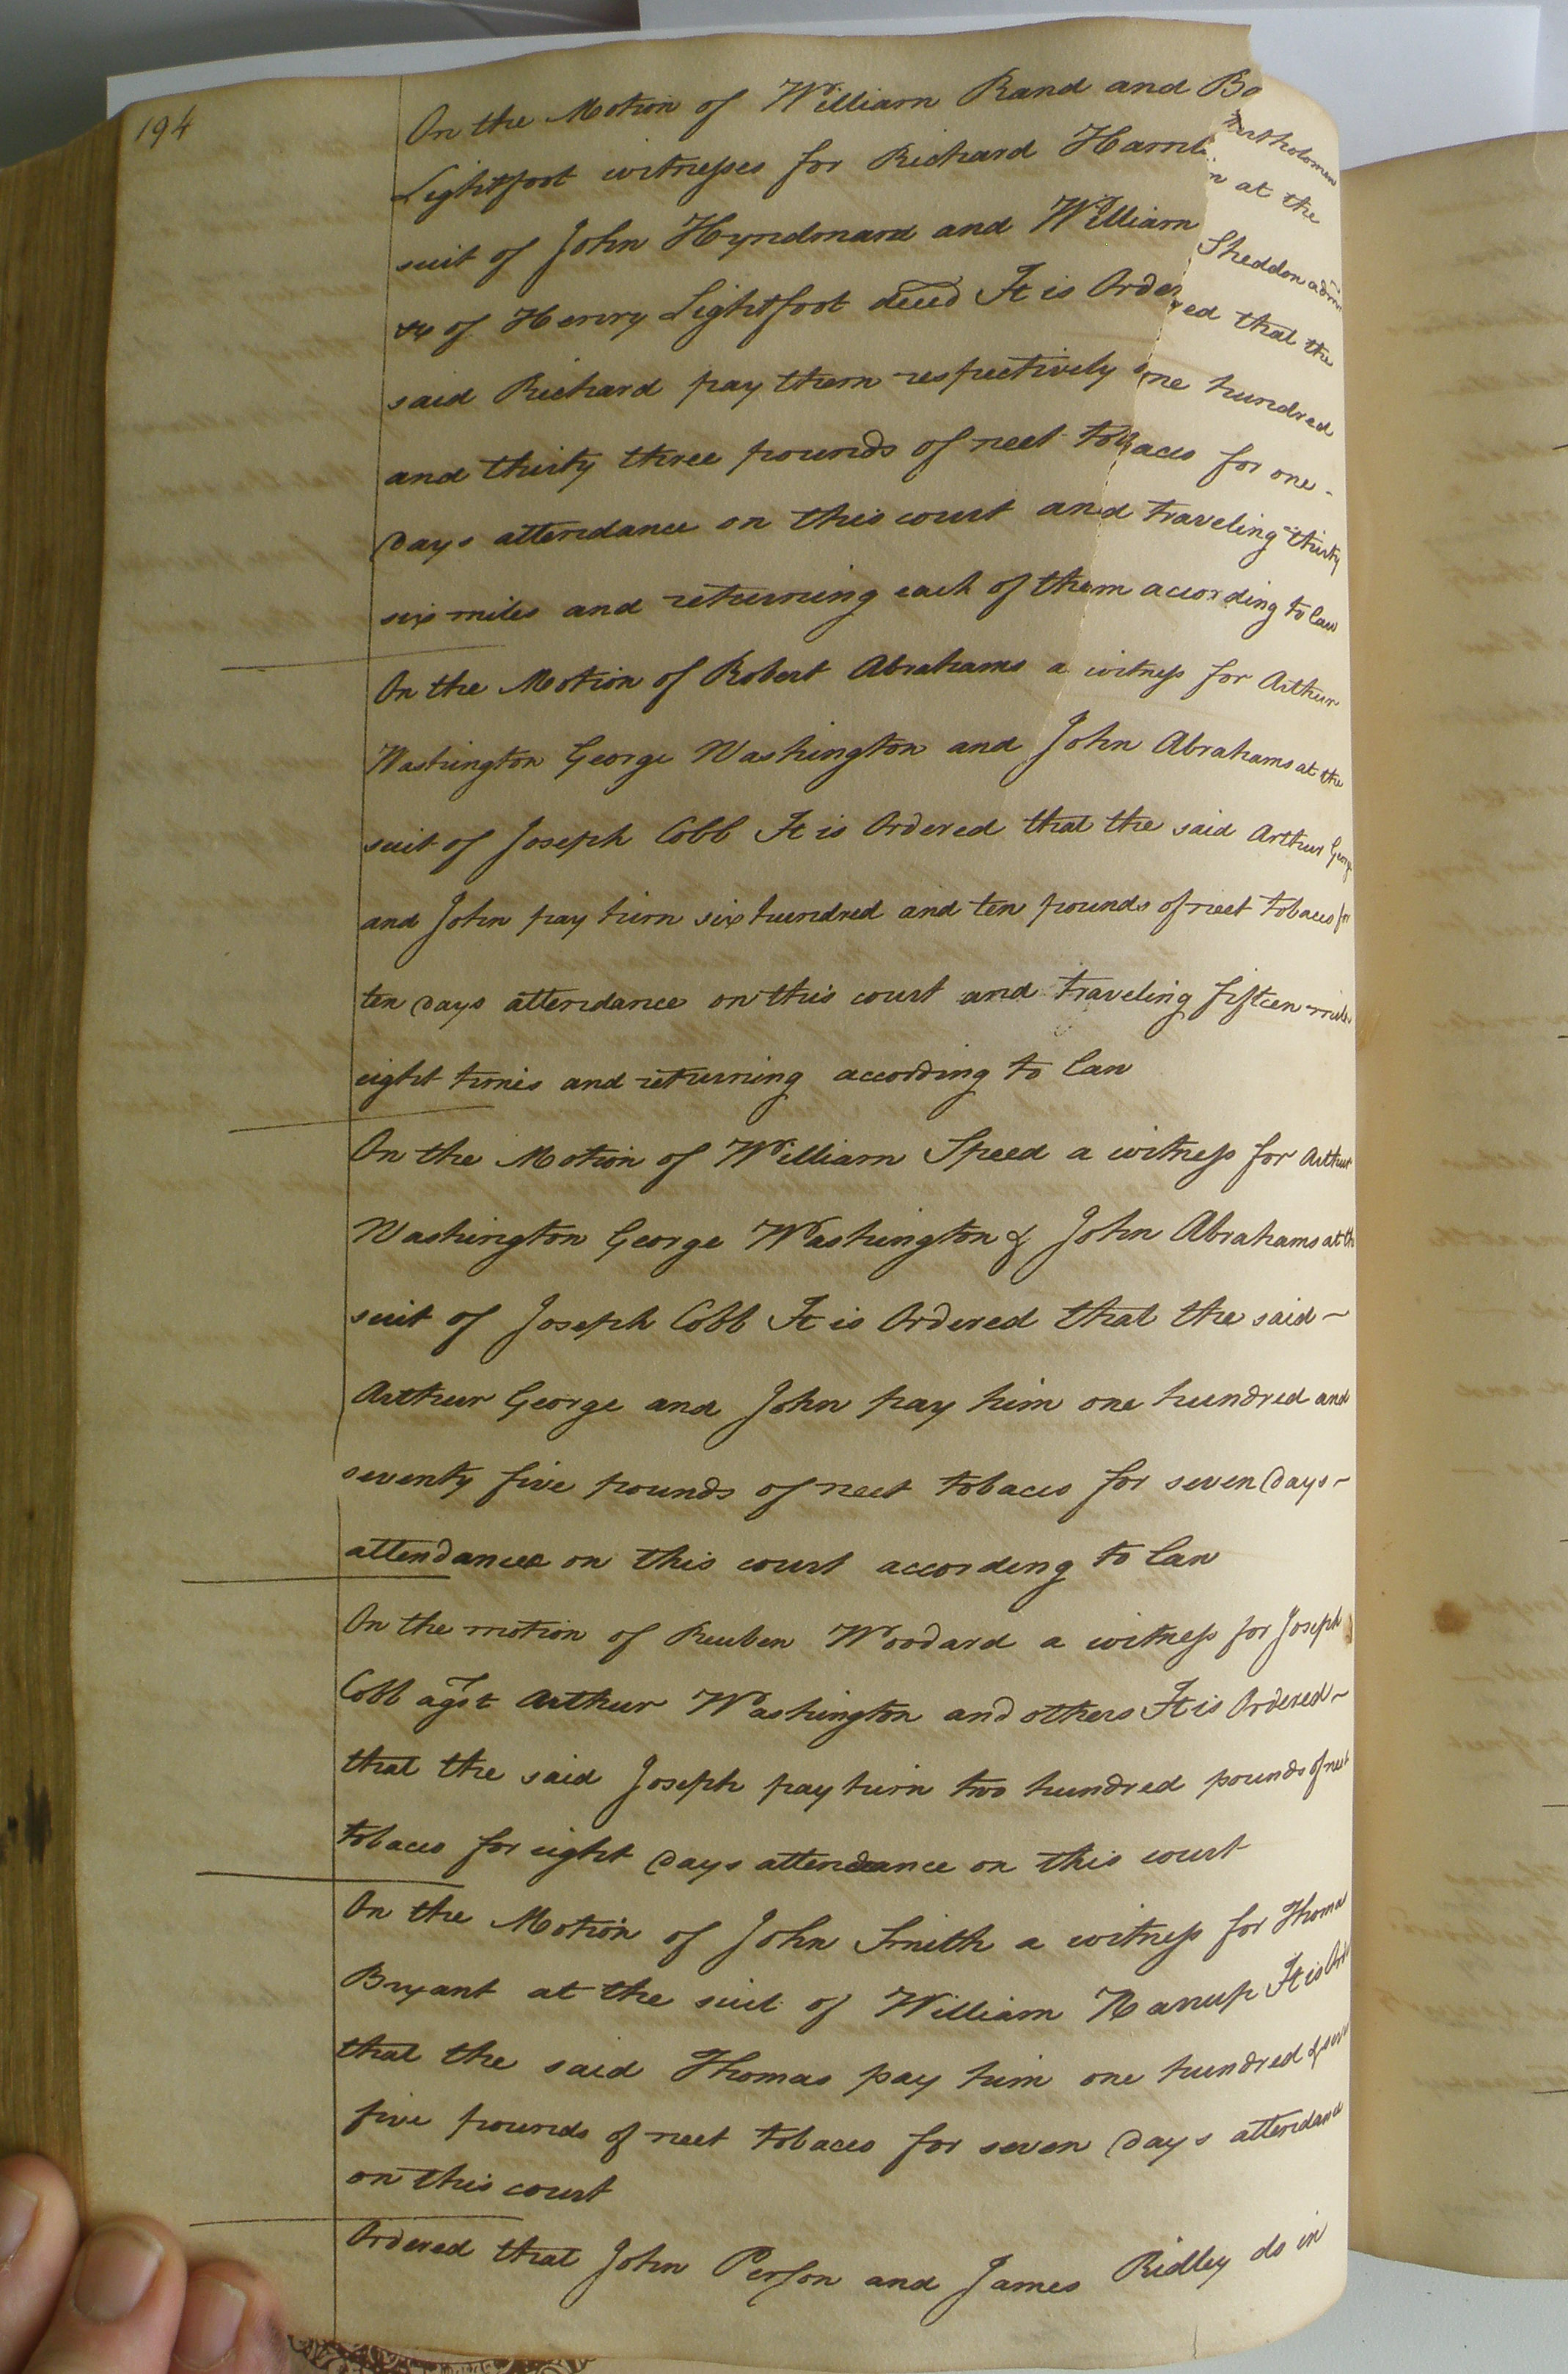 194
On the Motion of William Rand and Bartholomew
Lightfoot witnesses for Richard Hamlin at the
suit of John Hyndman and William Sheddon admr
&c of Henry Lightfoot deced It is Ordered that the
said Richard pay them respectively one hundred
and thirty three pounds of neet tobacco for one
days attendance on this court and traveling thirty
six miles and returning each of them according to law
On the Motion of Robert Abrahams a witness for Arthur
Washington George Washington and John Abrahams at the
suit of Joseph Cobb It is Ordered that the said Arthur George
and John pay him six hundred and ten pounds of neet tobacco for
ten days attendance on this court and traveling fifteen miles
eight times and returning according to law
On the Motion of William Speed a witness for Arthur
Washington George Washington & John Abrahams at the
suit of Joseph Cobb It is Ordered that the said
Arthur George and John pay him one hundred and
seventy five pounds of neet tobacco for seven days
attendance on this court according to law
On the motion of Reuben Woodard a witness for Joseph
Cobb agst Arthur Washington and others It is Ordered
that the said Joseph pay him two hundred pounds of neet
tobacco for eight days attendance on this court
On the Motion of John Smith a witness for Thomas
Bryant at the suit of William It is
that the said Thomas pay him one hundred &
five pounds of neet tobacco for seven days attendance
on this court
Ordered that John Person and James Ridley do in